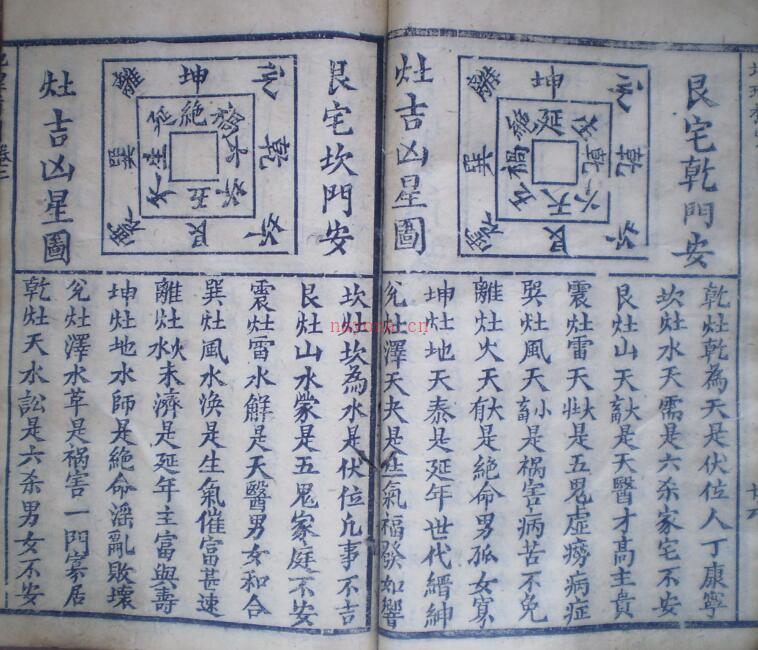 艮宅乾門安
灶吉凶星圖
離坤兑
巽乾
震艮坎
乾灶乾為天是伏位人丁康寧
坎灶水天需是六杀家宅不安
艮灶山天大畜是天醫才高主貴
震灶雷天大壯是五鬼虛癆病症
巽灶風天小畜是禍害病苦不免
離灶火天大有是絶命男孤女寡
坤灶地天泰是延年世代縉紳
兊灶澤天夬是生氣福發如響
艮宅坎門安
灶吉凶星圖
離坤兑
巽乾
震艮坎
坎灶坎為水是伏位凢事不吉
艮灶山水蒙是五鬼家庭不安
震灶雷水解是天醫男女和合
巽灶風水渙是生氣催富甚速
離灶火水未濟是延年主富與壽
坤灶地水師是絶命滛亂敗壞
兊灶澤水革是祸害一門寡居
乾灶天水訟是六杀男女不安